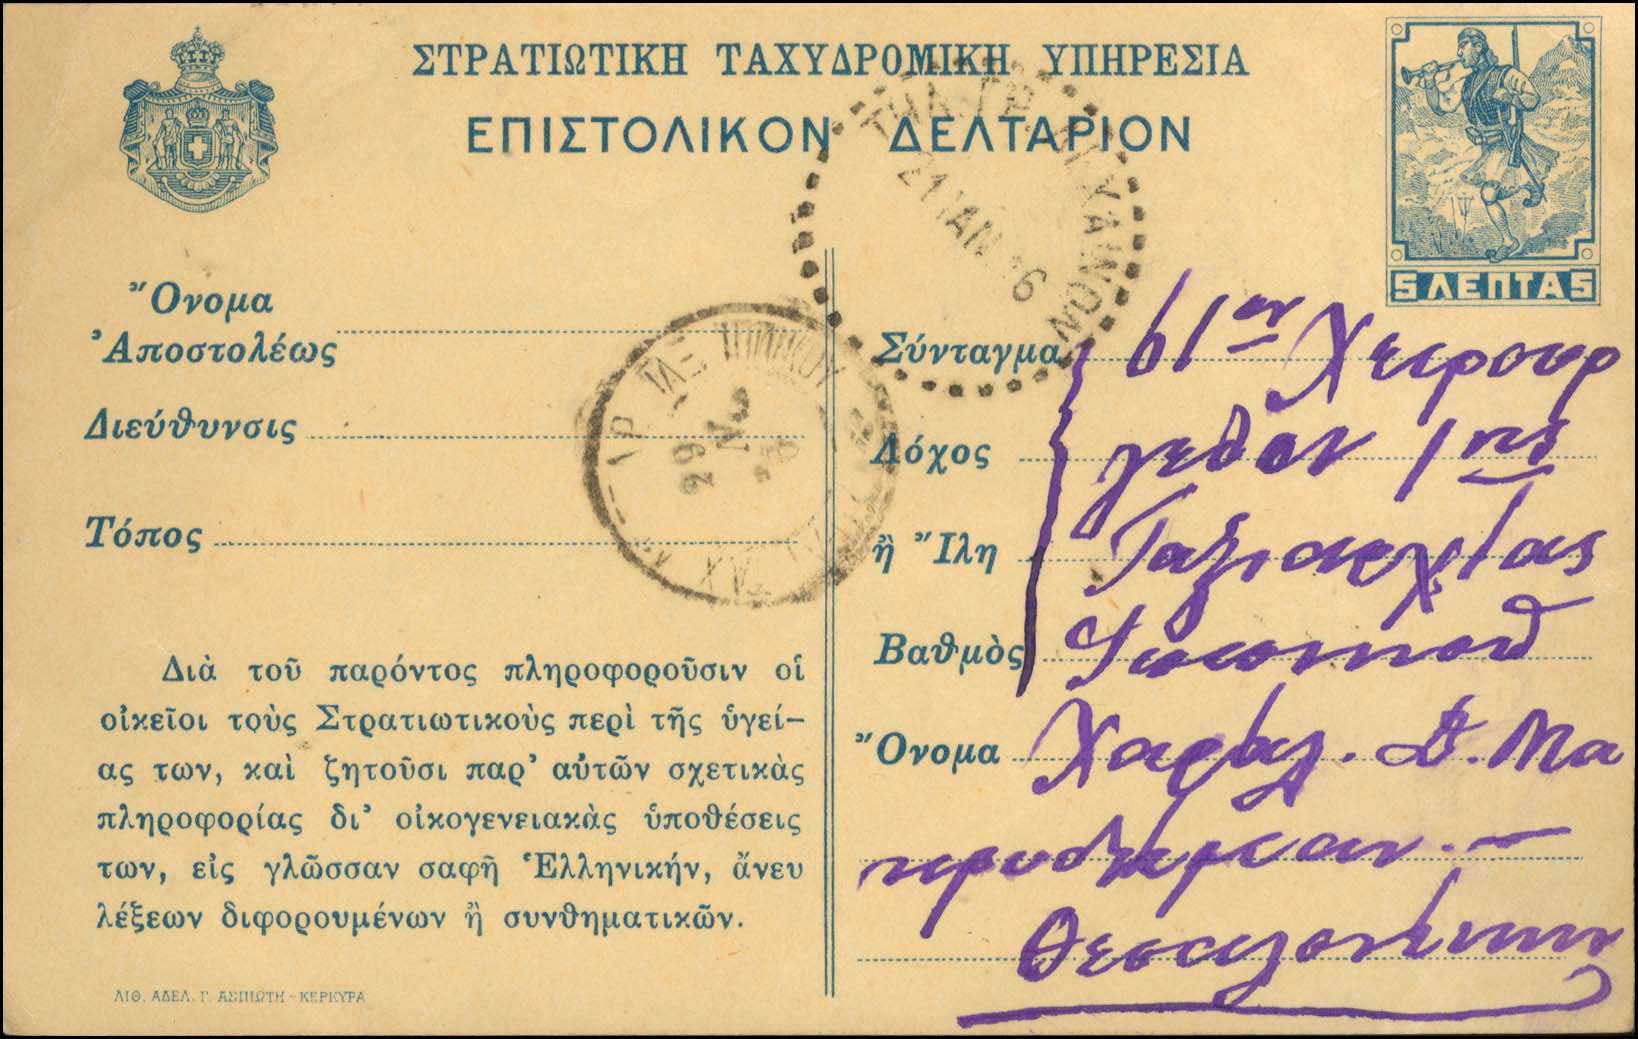 ΣΤΡΑΤΙΩΤΙΚΗ ΤΑΧΥΔΡΟΜΙΚΗ ΥΠΗΡΕΣΙΑ
ΕΠΙΣΤΟΛΙΚΟΝ ΔΕΛΤΑΡΙΟΝ
5 ΛΕΠΤΑ 5
21 ΙΑΝ 16
Ὄνομα
Ἀποστολέως
Διεύθυνσις
Τόπος
29
Διὰ τοῦ παρόντος πληροφοροῦσιν οἱ
οἰκεῖοι τοὺς Στρατιωτικοὺς περὶ τῆς ὑγεί–
ας των, καὶ ζητοῦσι παρ’ αὐτῶν σχετικὰς
πληροφορίας δι’ οἰκογενειακὰς ὑποθέσεις
των, εἰς γλῶσσαν σαφῆ Ἑλληνικήν, ἄνευ
λέξεων διφορουμένων ἢ συνθηματικῶν.
ΛΙΘ. ΑΔΕΛ. Γ. ΑΣΠΙΩΤΗ - ΚΕΡΚΥΡΑ
Σύνταγμα
Λόχος 1ης
ἢ Ἴλη Ταξιαρχίας
Βαθμὸς
Ὄνομα Χαράλ. Δ. Μα
Θεσσαλονίκην